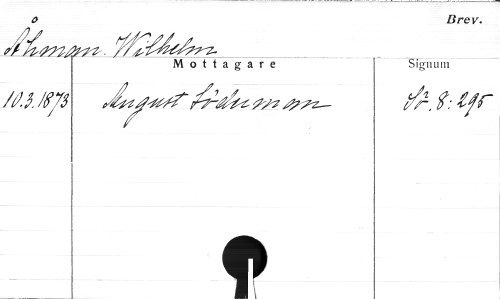 Brev.
Åhman. Wilhelm
Mottagare Signum
10.3.1873 August Söderman Sö. 8: 295